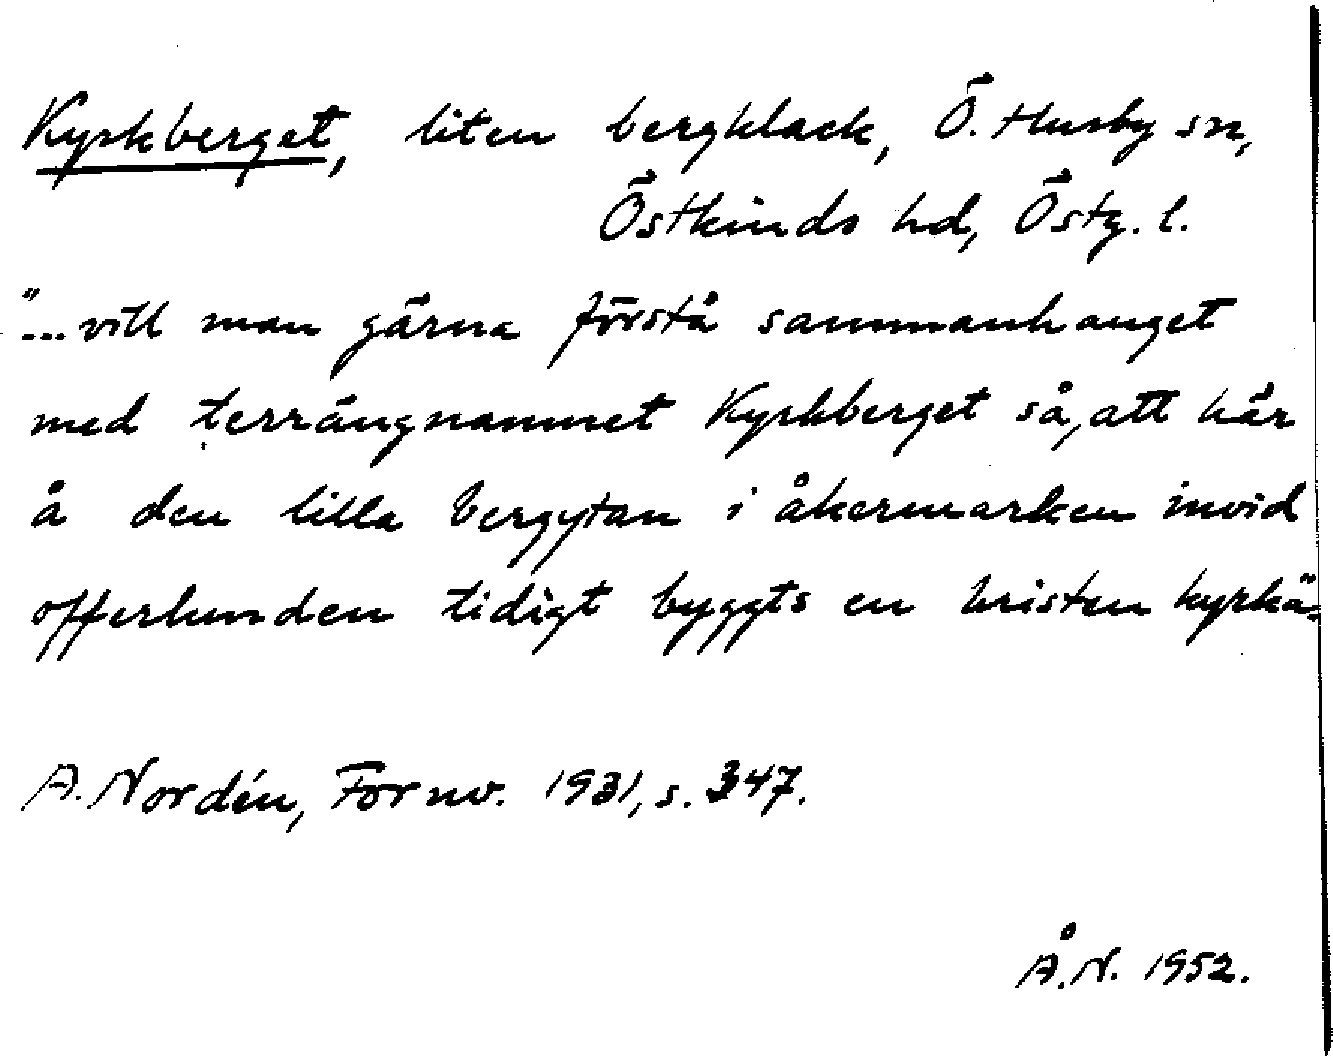 Kyrkberget, liten bergklack, Ö. Husby sn,
Östkinds hd, Östg. l.
"... vill man gärna förstå sammanhanget
med terrängnamnet Kyrkberget så, att här
å den lilla bergytan i åkermarken invid
offerlunden tidigt byggts en kristen kyrka".
A. Nordén, Fornv. 1931, s. 347.
Å.N. 1952.